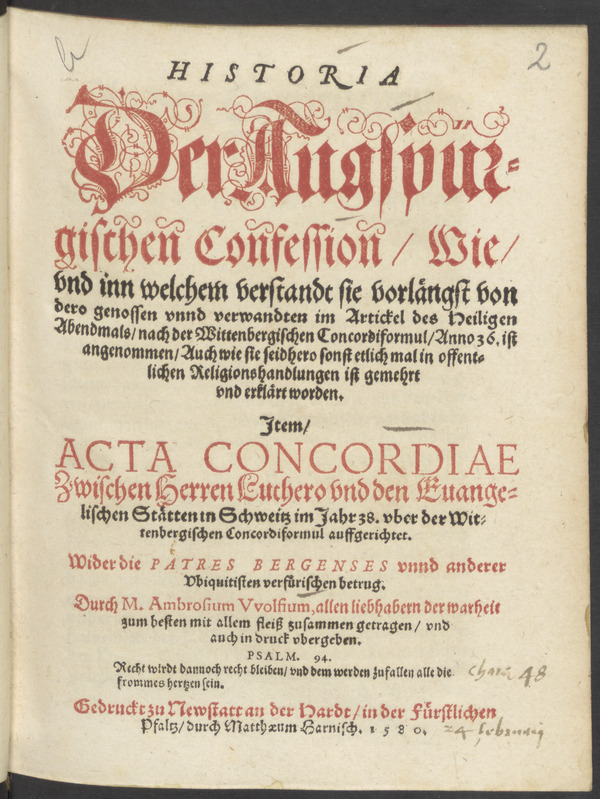 2
HISTORIA
Der Augspur-
gischen Confession / Wie /
vnd inn welchem verstandt sie vorlängst von
dero genossen vnnd verwandten im Artickel des Heiligen
Abendmals / nach der Wittenbergischen Concordiformul / Anno 36. ist
angenommen / Auch wie sie seidhero sonst etlich mal in offent-
lichen Religionshandlungen ist gemehrt
vnd erklärt worden.
Item /
ACTA CONCORDIAE
Zwischen Herren Luthero vnd den Euange-
lischen Stätten in Schweitz im Jahr 38. vber der Wit-
tenbergischen Concordiformul auffgerichtet.
Wider die PATRES BERGENSES vnnd anderer
Vbiquitisten verfürischen betrug.
Durch M. Ambrosium VVolfium, allen liebhabern der warheit
zum besten mit allem fleiß zusammen getragen / vnd
auch in druck vbergeben.
PSALM. 94.
Recht wirdt dannoch recht bleiben / vnd dem werden zufallen alle die
frommes hertzen sein.
48
Gedruckt zu Newstatt an der Hardt / in der Fürstlichen
Pfaltz / durch Matthæum Harnisch. 1580.
24